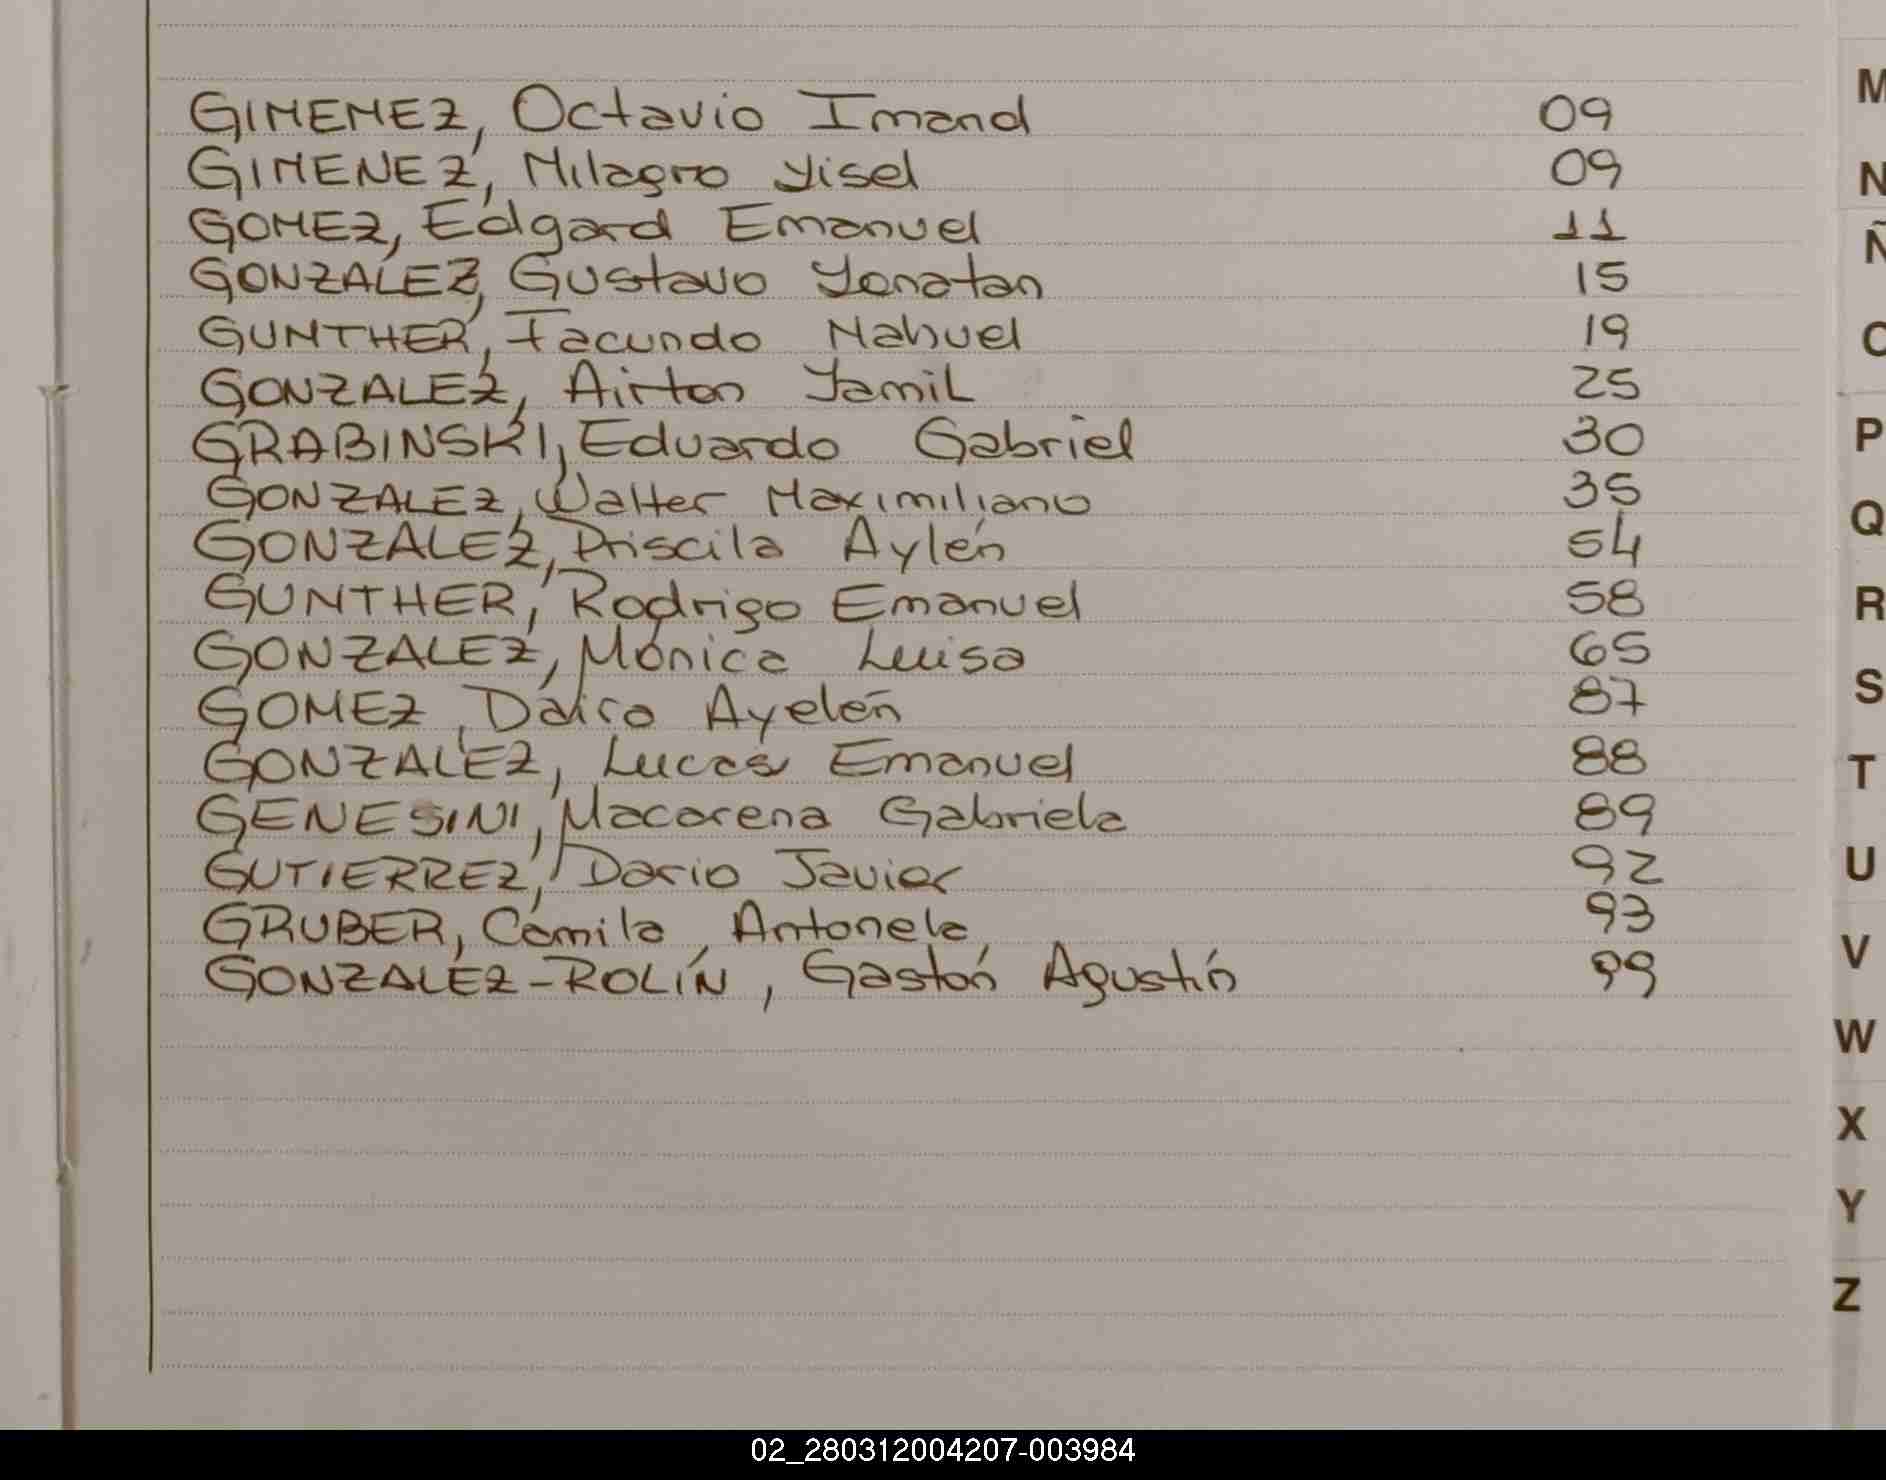 GIMEMEZ, Octavio Imand 09
GIMENEZ, Milagro Yisel 09
GOMEZ, Edgard Emanuel 11
GONZALEZ, Gustavo Yonatan 15
GUNTHER, Facundo Nahuel 19
GONZALEZ, Airton Yamil 25
GRABINSKI, Eduardo Gabriel 30
GONZALEZ, Walter Maximiliano 35
GONZALEZ, Priscila Aylén 54
GUNTHER, Rodrigo Emanuel 58
GONZALEZ, Mónica Luisa 65
GOMEZ, Daira Ayelén 87
GONZALEZ, Lucas Emanuel 88
GENESINI, Macarena Gabriela 89
GUTIERREZ, Dario Javier 92
GRUBER, Camila Antonela 93
GONZALEZ-ROLÍN, Gastón Agustín 99
M
N
Ñ
O
P
Q
R
S
T
U
V
W
X
Y
Z
02_280312004207-003984